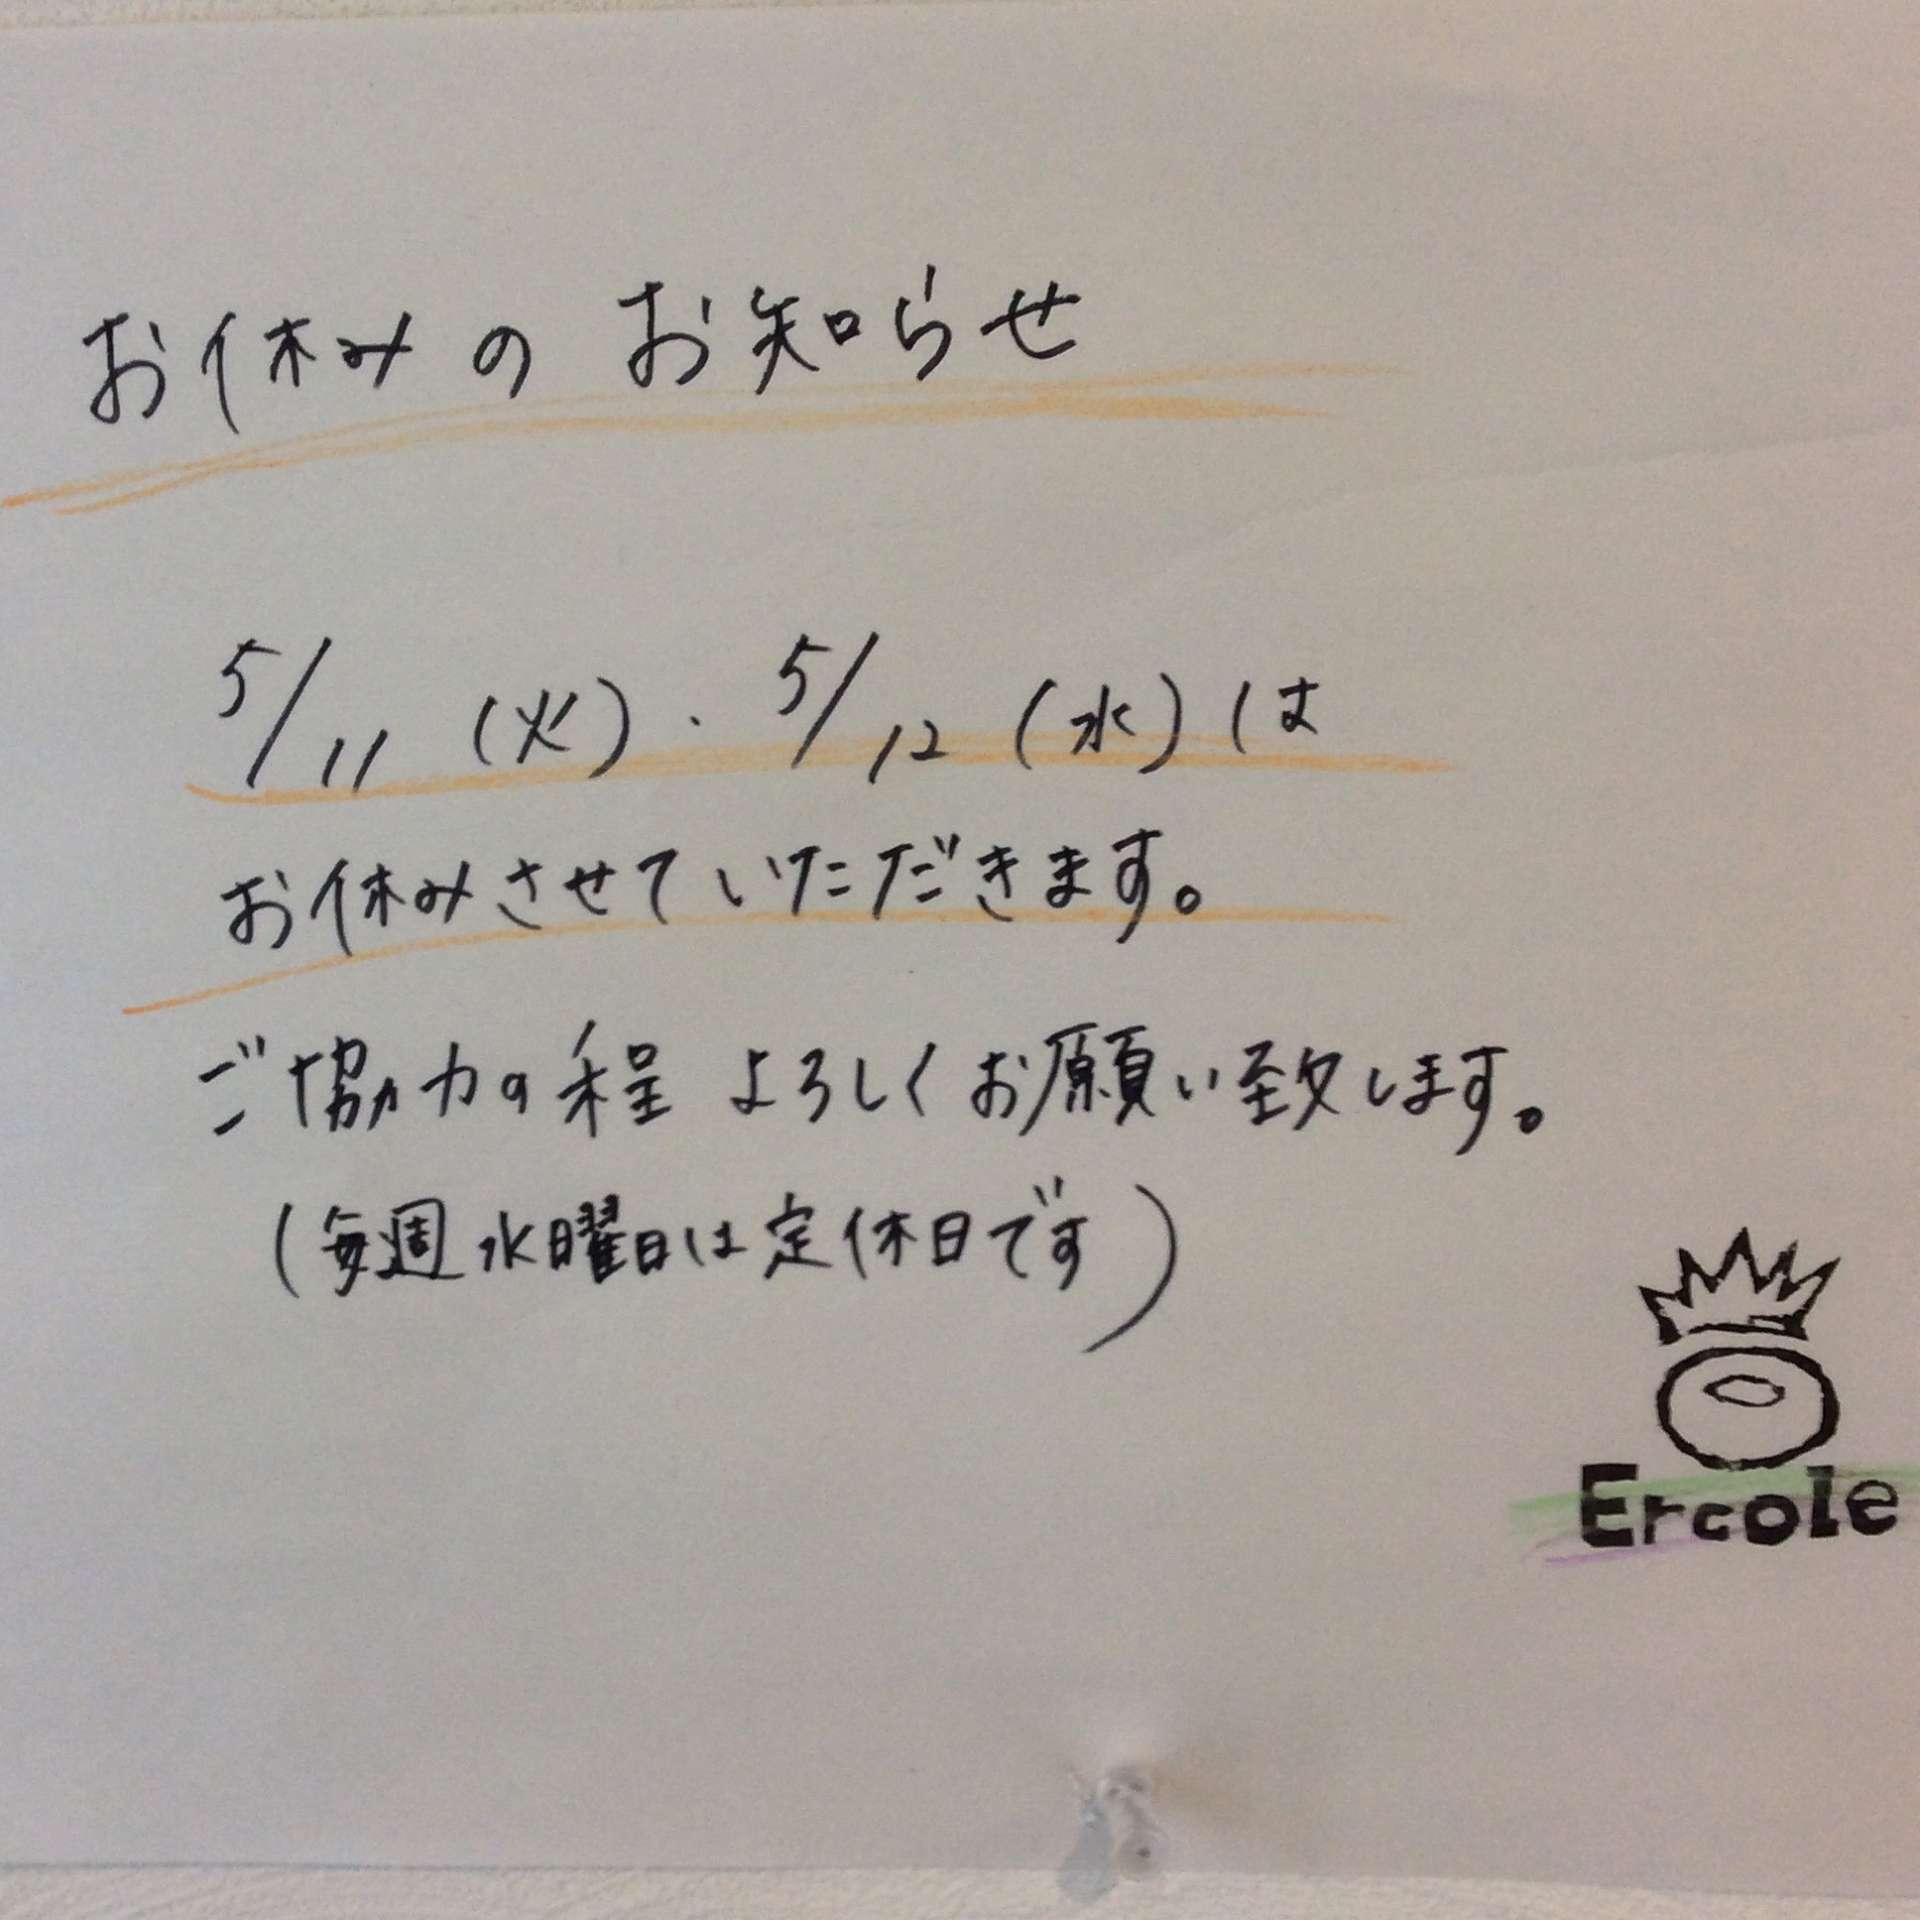 お休みのお知らせ
5/11(火)・5/12(水)は
お休みさせていただきます。
ご協力の程よろしくお願い致します。
(毎週水曜日は定休日です)
Ercole